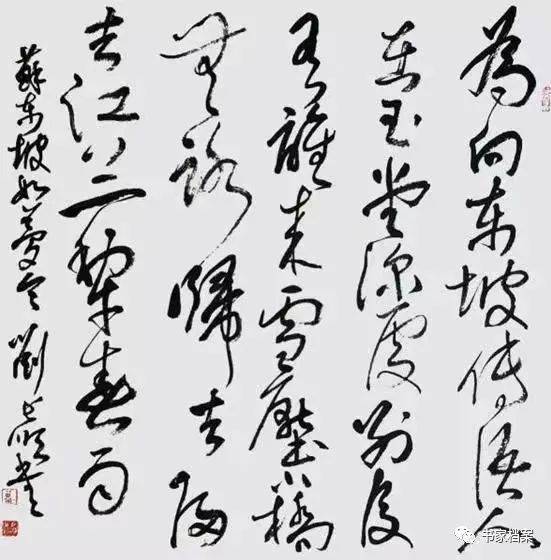 為向東坡傳語人
在玉堂深處別後
有誰來雪壓小橋
無路歸去歸
去江上一犁春雨
蘇東坡如夢令 劉
书家档案